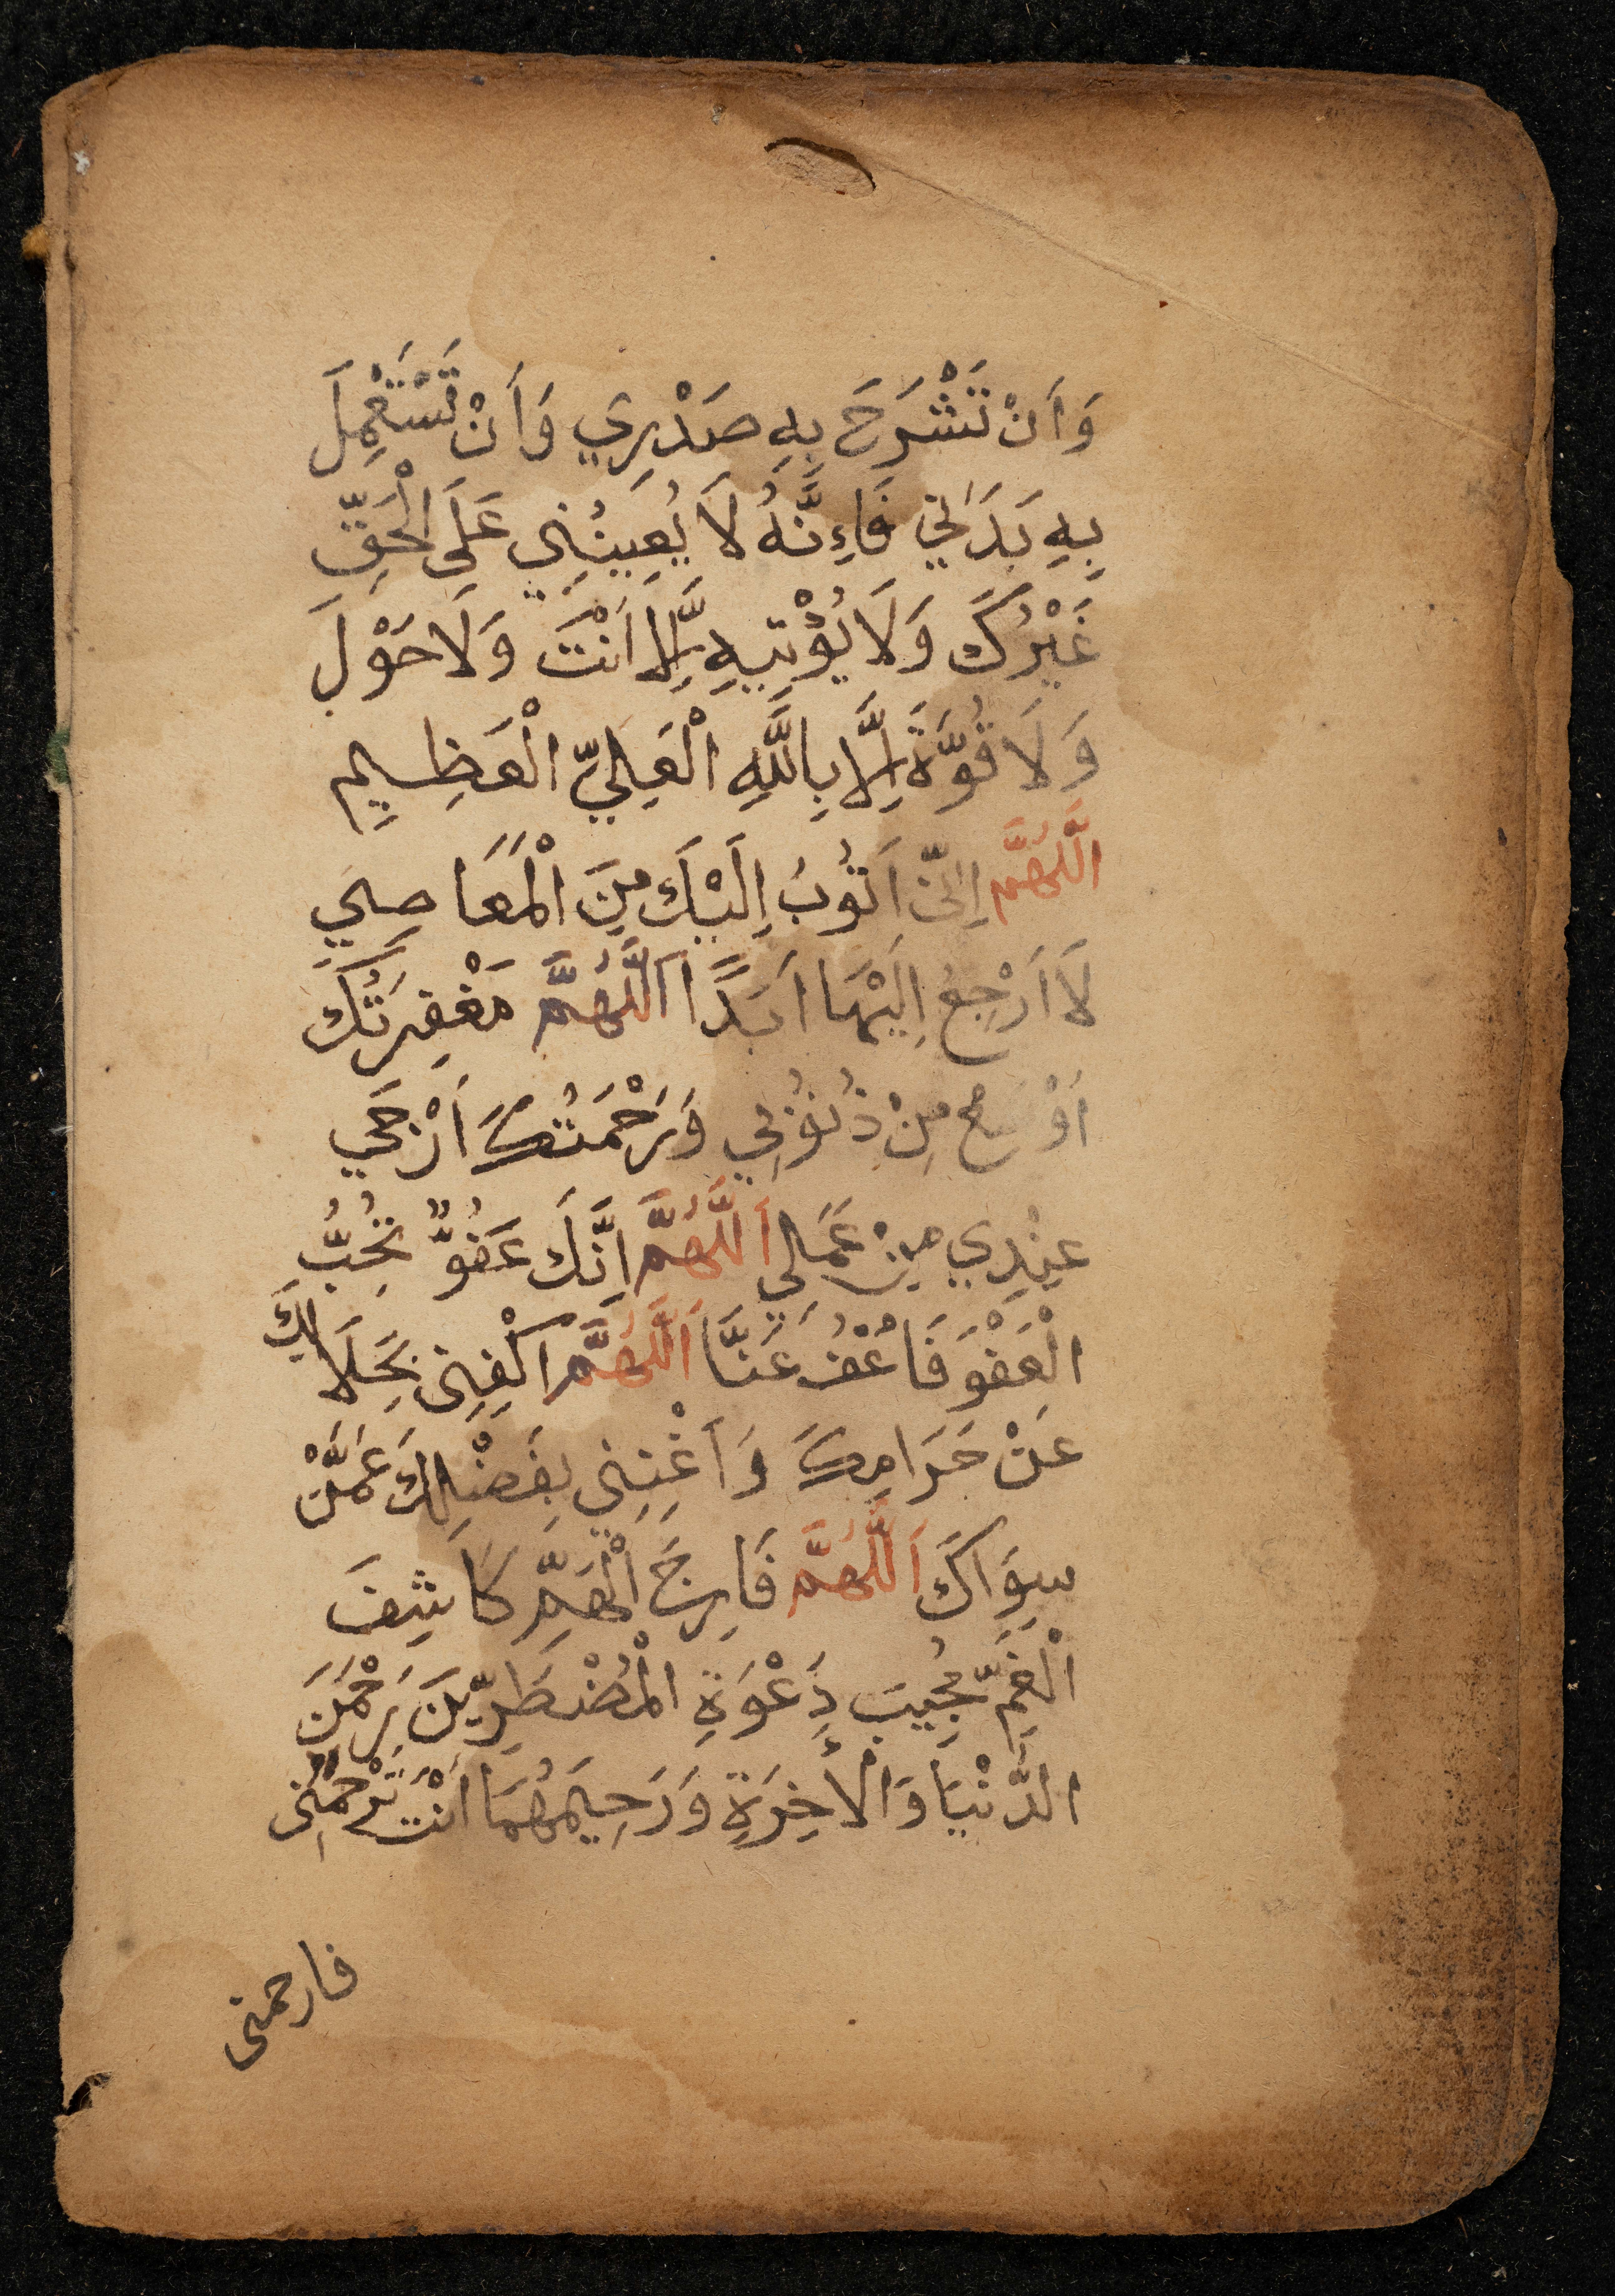 وَأَنْ تَشْرَحَ بِهِ صَدْرِي وَأَنْ تَسْتَعْمِلَ
بِهِ بَدَنِي فَاِءِنَّهُ لَا يُعِينُنِي عَلَى الْحَقِّ
غَيْرُكَ وَلَا يُؤْتِيهِ إِلَّا أَنْتَ وَلَا حَوْلَ
وَلَا قُوَّةَ إِلَّا بِاللَّهِ الْعَلِيِّ الْعَظِيمِ
اللَّهُمَّ اِنِّي اَتُوبُ اِلَيْكَ مِنَ الْمَعَاصِي
لَا اَرْجِعُ اِلَيْهَا اَبَدًا اَللَّهُمَّ مَغْفِرَتُكَ
اَوْسَعُ مِنْ ذُنُوبِي وَرَحْمَتُكَ اَرْجَى
عِنْدِي مِنْ عَمَلِي اَللَّهُمَّ اِنَّكَ عَفُوٌّ تُحِبُّ
الْعَفْوَ فَاعْفُ عَنَّا اَللَّهُمَّ اَكْفِنِي بِحَلَالِكَ
عَنْ حَرَامِكَ وَأَغْنِنِي بِفَضْلِكَ عَمَّنْ
سِوَاكَ اَللَّهُمَّ فَارِجَ الْهَمِّ كَاشِفَ
الْغَمِّ مُجِيبَ دَعْوَةِ الْمُضْطَرِّينَ رَحْمَنَ
الدُّنْيَا وَالْأَخِرَةِ وَرَحِيمَهُمَا اَنْتَ تَرْحَمُنِي
فارحمنى